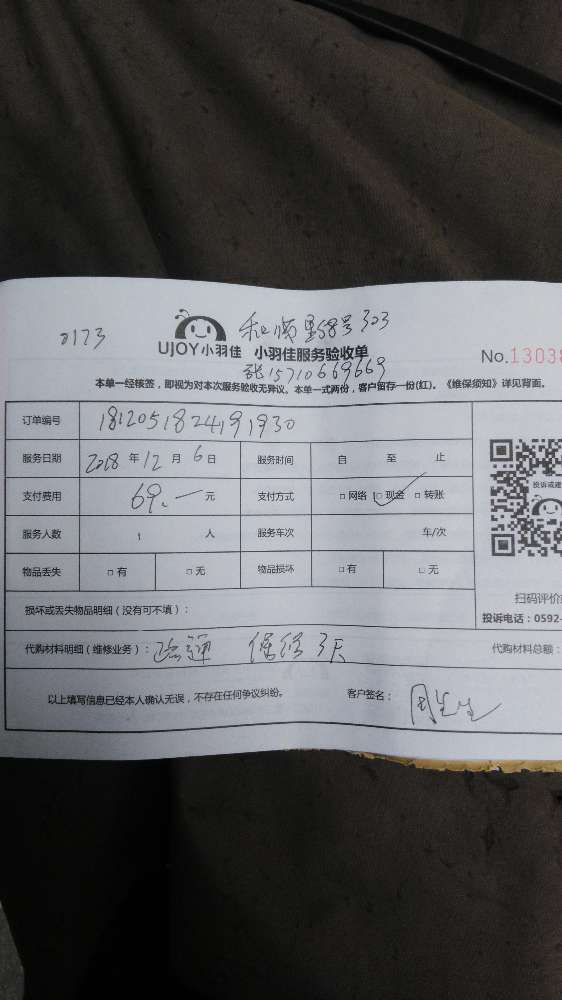 0173
和顺里58号303
UJOY小羽佳 小羽佳服务验收单
No.13038
张15710669669
本单一经核签，即视为对本次服务验收无异议。本单一式两份，客户留存一份(红)。《维保须知》详见背面。
订单编号 18120518241919 30
服务日期 2018 年 12 月 6 日 服务时间 自 至 止
投诉或建
支付费用 69.一 元 支付方式 □ 网络 □ 现金 □ 转账
服务人数 1 人 服务车次 车/次
物品丢失 □ 有 □ 无 物品损坏 □ 有 □ 无
扫码评价
损坏或丢失物品明细（没有可不填）：
投诉电话：0592-
代购材料明细（维修业务）： 疏通 保修3天 代购材料总额：
以上填写信息已经本人确认无误，不存在任何争议纠纷。 客户签名： 周先生